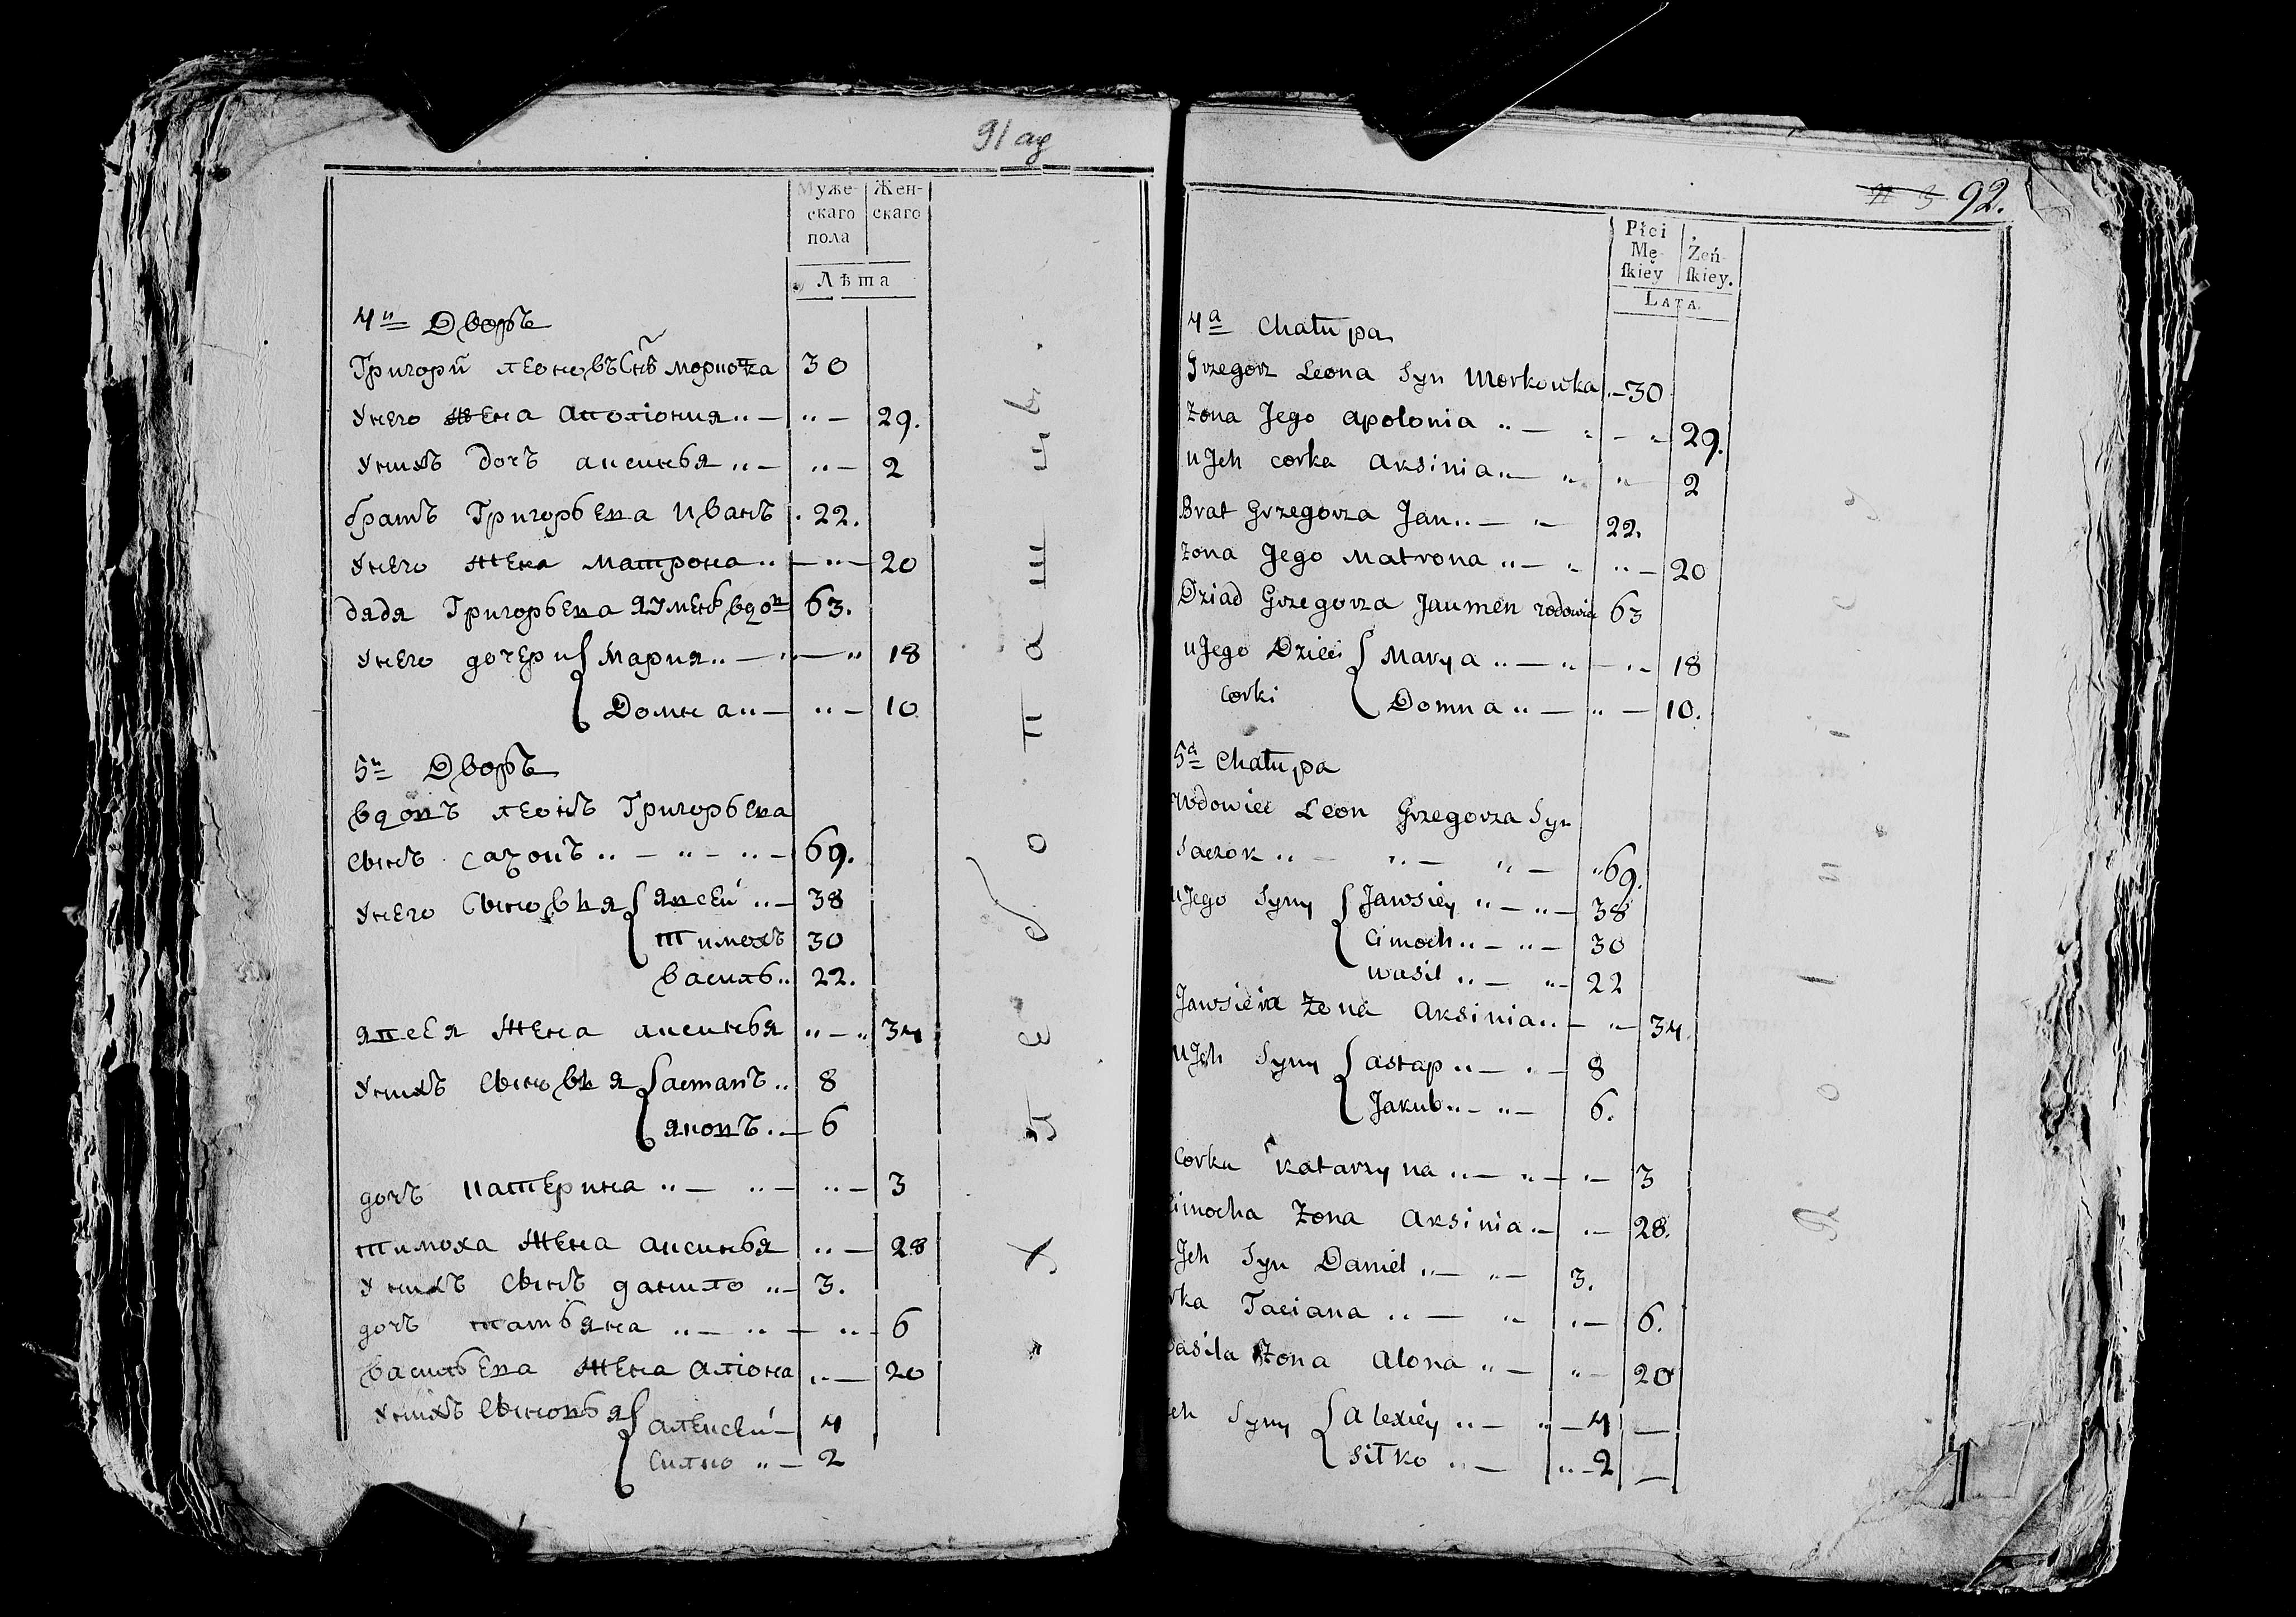 91 ад
Муже-
скаго
пола
Жен-
скаго
Лѣта
4й Дворъ
Григорй леоновъ Снъ моркоѵка 30
Унего жена аполіония 29.
Унихъ дочъ аксинья 2
братъ Григорьева Иванъ 22.
Унего жена матрона 20
дядя Григорьева яумень вдов 63.
Унего дочери Мария 18
Домна 10
5й Дворъ
вдовъ леонъ Григорьева
сынъ сачокъ 69.
Унего сыновья явсей 38
тимохъ 30
василь 22.
явсея жена аксинья 34
Унихъ сыновья астапъ 8
яковъ 6
дочъ катерина 3
тимоха жена аксинья 28
Унихъ сынъ данило 3.
дочъ татьяна 6
васильева жена аліона 20
Унихъ сыновья алексей 4
силко 2
Хлебопашцы.
92.
Płci
Mę-
ſkiey
Żeń-
ſkiey.
LATA.
4a Chałupa
Grzegorz Leona Syn Morkowka 30
Żona Jego apolonia 29.
u Jch corka Aksinia 2
Brat Grzegorza Jan 22.
Żona Jego Matrona 20
Dziad Grzegorza Jaumen 63
u Jego Dzieci Marya 18
corki Domna 10.
5a Chałupa
Wdowiec Leon Grzegorza Syn
Saczok 69.
u Jego Syny Jawsiey 38
Cimoch 30
wasil 22
Jawsieia Żona Aksinia 34.
u Jch Syny astap 8
Jakub 6.
Corka Katarzyna 3
Cimocha Żona Aksinia 28.
Jch Syn Daniel 3.
rka Taciana 6.
wasila Żona Alona 20
Jch Syny Alexiey 4
Siłko 2
Rolnicy